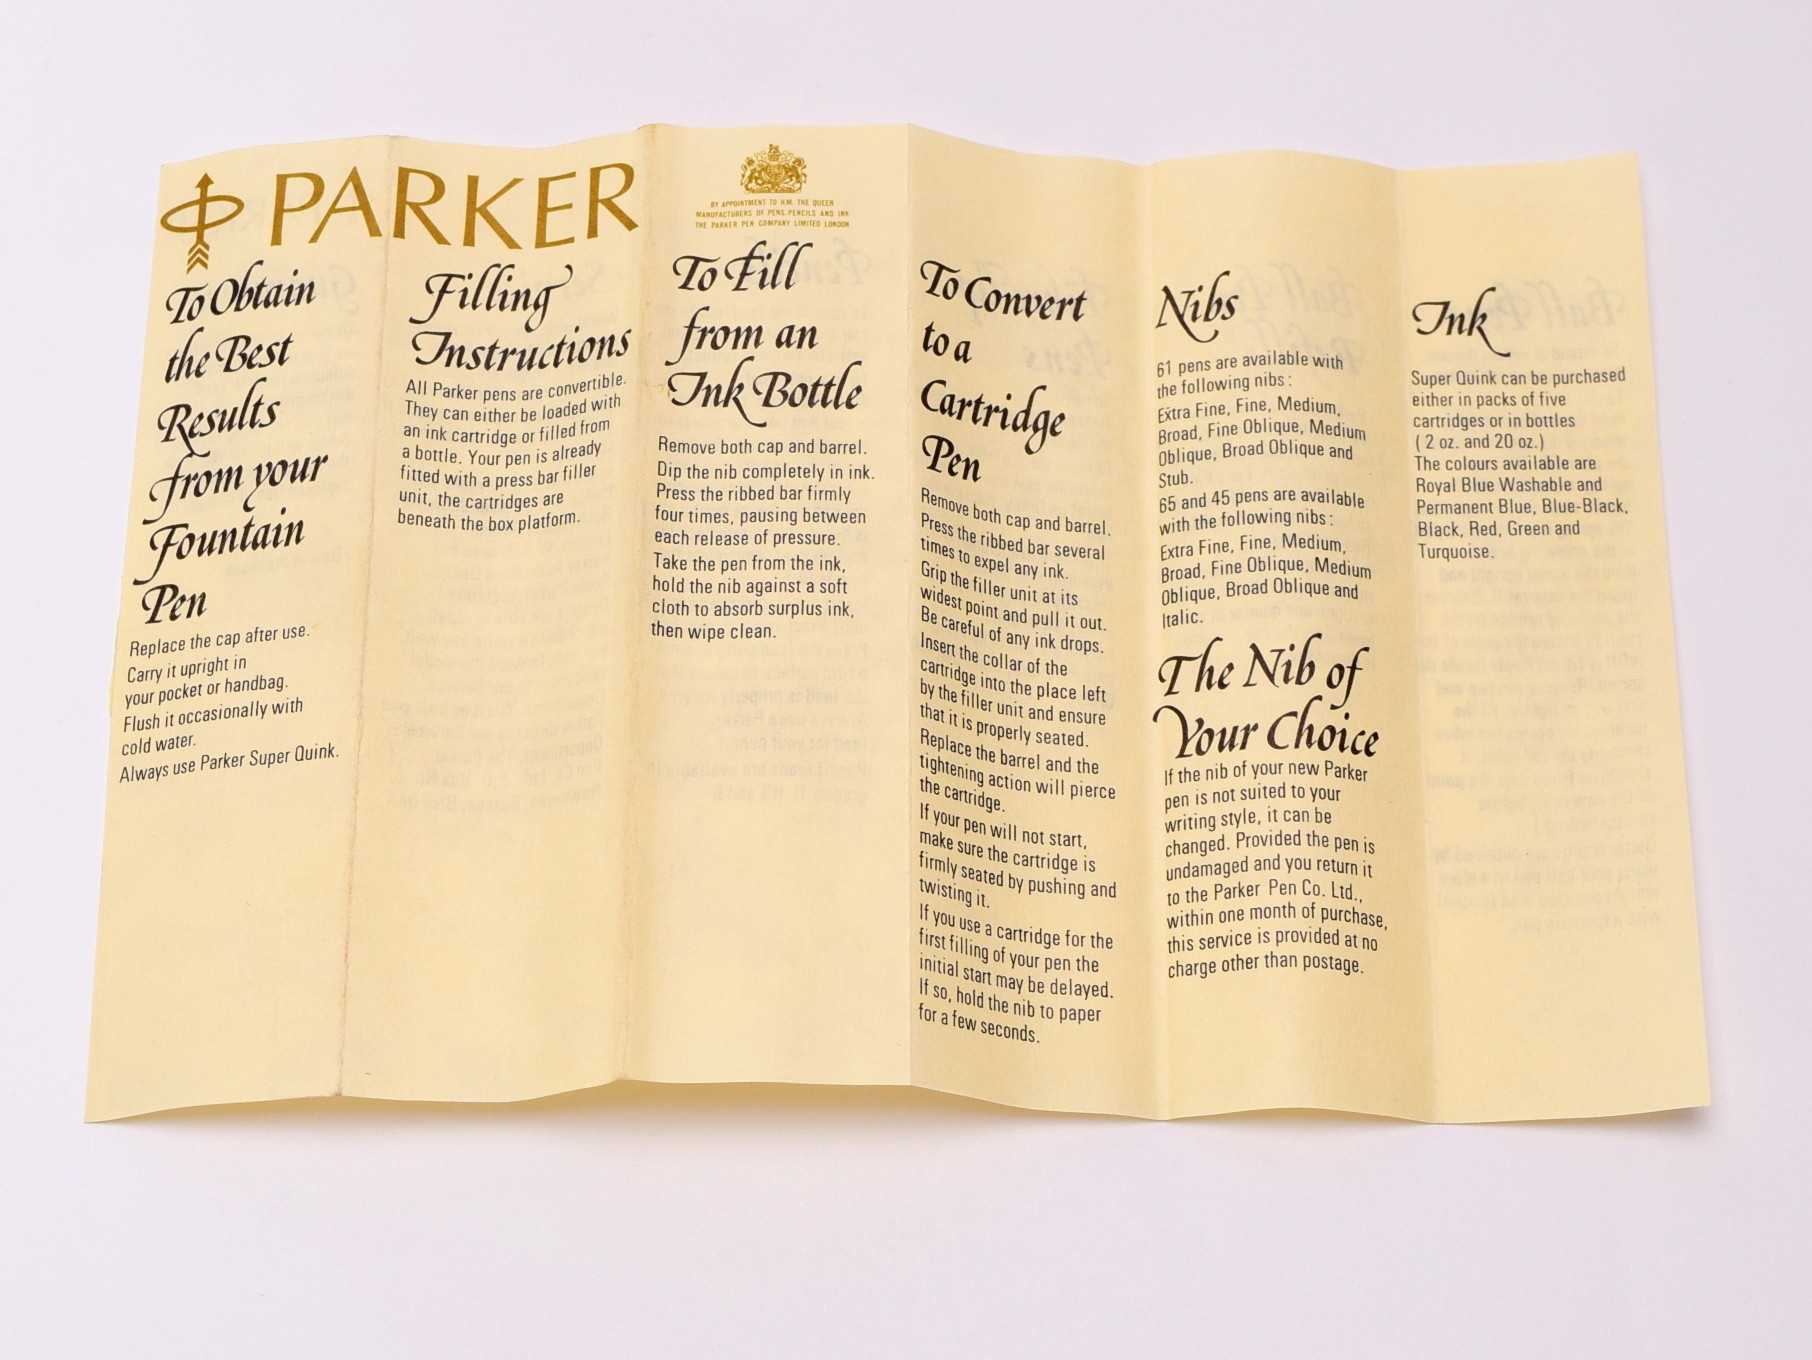 PARKER
To Obtain
the Best
Results
from your
Fountain
Pen
Replace the cap after use.
Carry it upright in
your pocket or handbag.
Flush it occasionally with
cold water.
Always use Parker Super Quink.
Filling
Instructions
All Parker pens are convertible.
They can either be loaded with
an ink cartridge or filled from
a bottle. Your pen is already
fitted with a press bar filler
unit, the cartridges are
beneath the box platform.
BY APPOINTMENT TO H.M. THE QUEEN
MANUFACTURERS OF PENS PENCILS AND INK
THE PARKER PEN COMPANY LIMITED LONDON
To Fill
from an
Ink Bottle
Remove both cap and barrel.
Dip the nib completely in ink.
Press the ribbed bar firmly
four times, pausing between
each release of pressure.
Take the pen from the ink,
hold the nib against a soft
cloth to absorb surplus ink,
then wipe clean.
To Convert
to a
Cartridge
Pen
Remove both cap and barrel.
Press the ribbed bar several
times to expel any ink.
Grip the filler unit at its
widest point and pull it out.
Be careful of any ink drops.
Insert the collar of the
cartridge into the place left
by the filler unit and ensure
that it is properly seated.
Replace the barrel and the
tightening action will pierce
the cartridge.
If your pen will not start,
make sure the cartridge is
firmly seated by pushing and
twisting it.
If you use a cartridge for the
first filling of your pen the
initial start may be delayed.
If so, hold the nib to paper
for a few seconds.
Nibs
61 pens are available with
the following nibs :
Extra Fine, Fine, Medium,
Broad, Fine Oblique, Medium
Oblique, Broad Oblique and
Stub.
65 and 45 pens are available
with the following nibs :
Extra Fine, Fine, Medium,
Broad, Fine Oblique, Medium
Oblique, Broad Oblique and
Italic.
The Nib of
Your Choice
If the nib of your new Parker
pen is not suited to your
writing style, it can be
changed. Provided the pen is
undamaged and you return it
to the Parker Pen Co. Ltd.,
within one month of purchase,
this service is provided at no
charge other than postage.
Ink
Super Quink can be purchased
either in packs of five
cartridges or in bottles
( 2 oz. and 20 oz.)
The colours available are
Royal Blue Washable and
Permanent Blue, Blue-Black,
Black, Red, Green and
Turquoise.